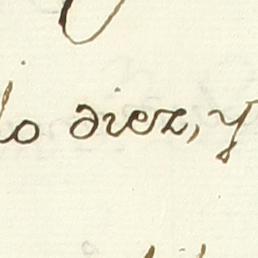 lo diez, y